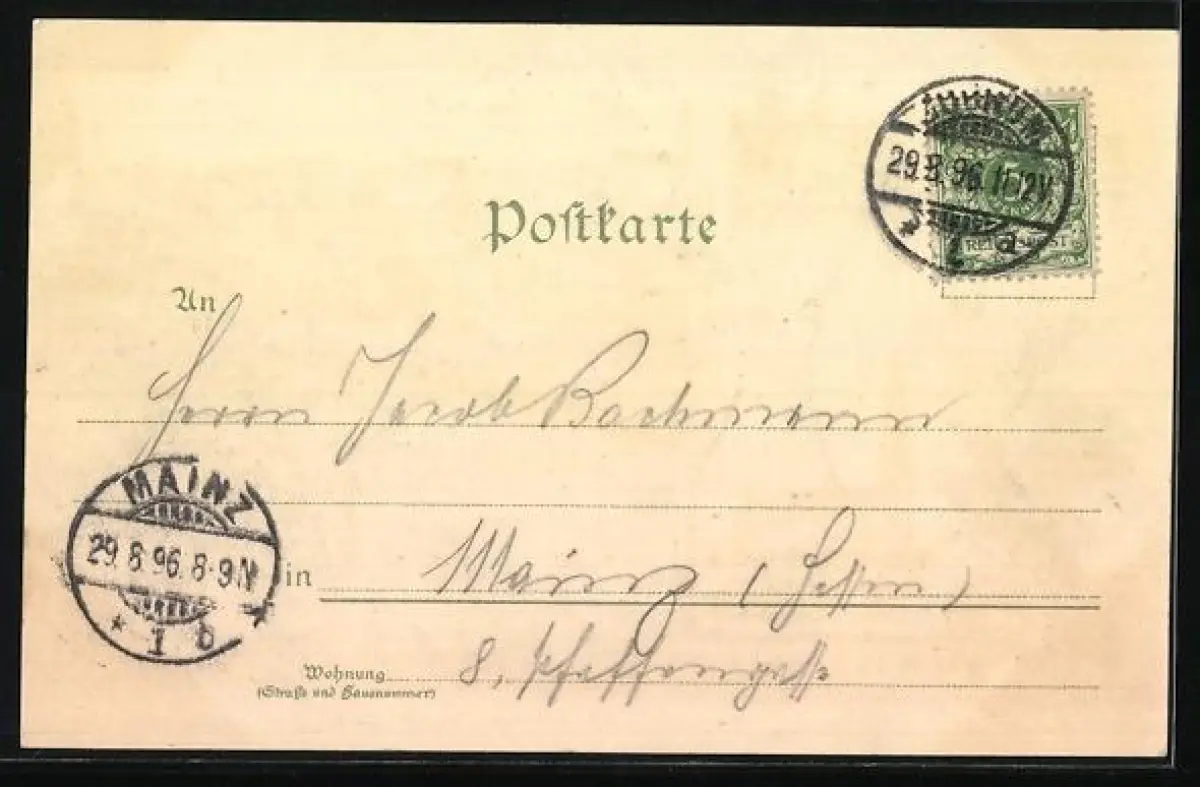 29.8.96.11-12V.
* 1 d
5
REICHSPOST
Postkarte
An
Herrn Jacob Bachmann
MAINZ
29.8.96.8-9N
* 1 b *
in Mainz (Hessen)
Wohnung 8, Pfaffengasse
(Straße und Hausnummer)